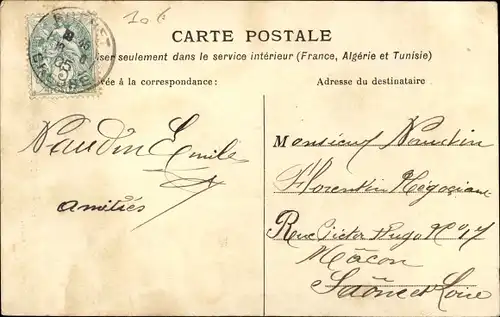 10 c
CARTE POSTALE
iser seulement dans le service intérieur (France, Algérie et Tunisie)
vée à la correspondance:
Adresse du destinataire
Naudin Emile
amitiés
Monsieur Naudin
Florentin Négociant
Rue Victor Hugo No 17
Mâcon
Saône et Loire